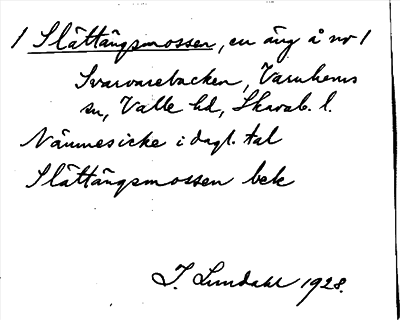 / Slättängsmossen, en äng å nr 1
Svarvarebacken, Varnhems
sn, Valle hd, Skarab. l.
Nämnes icke i dagl. tal
Slättängsmossen bek
I. Lundahl 1928.